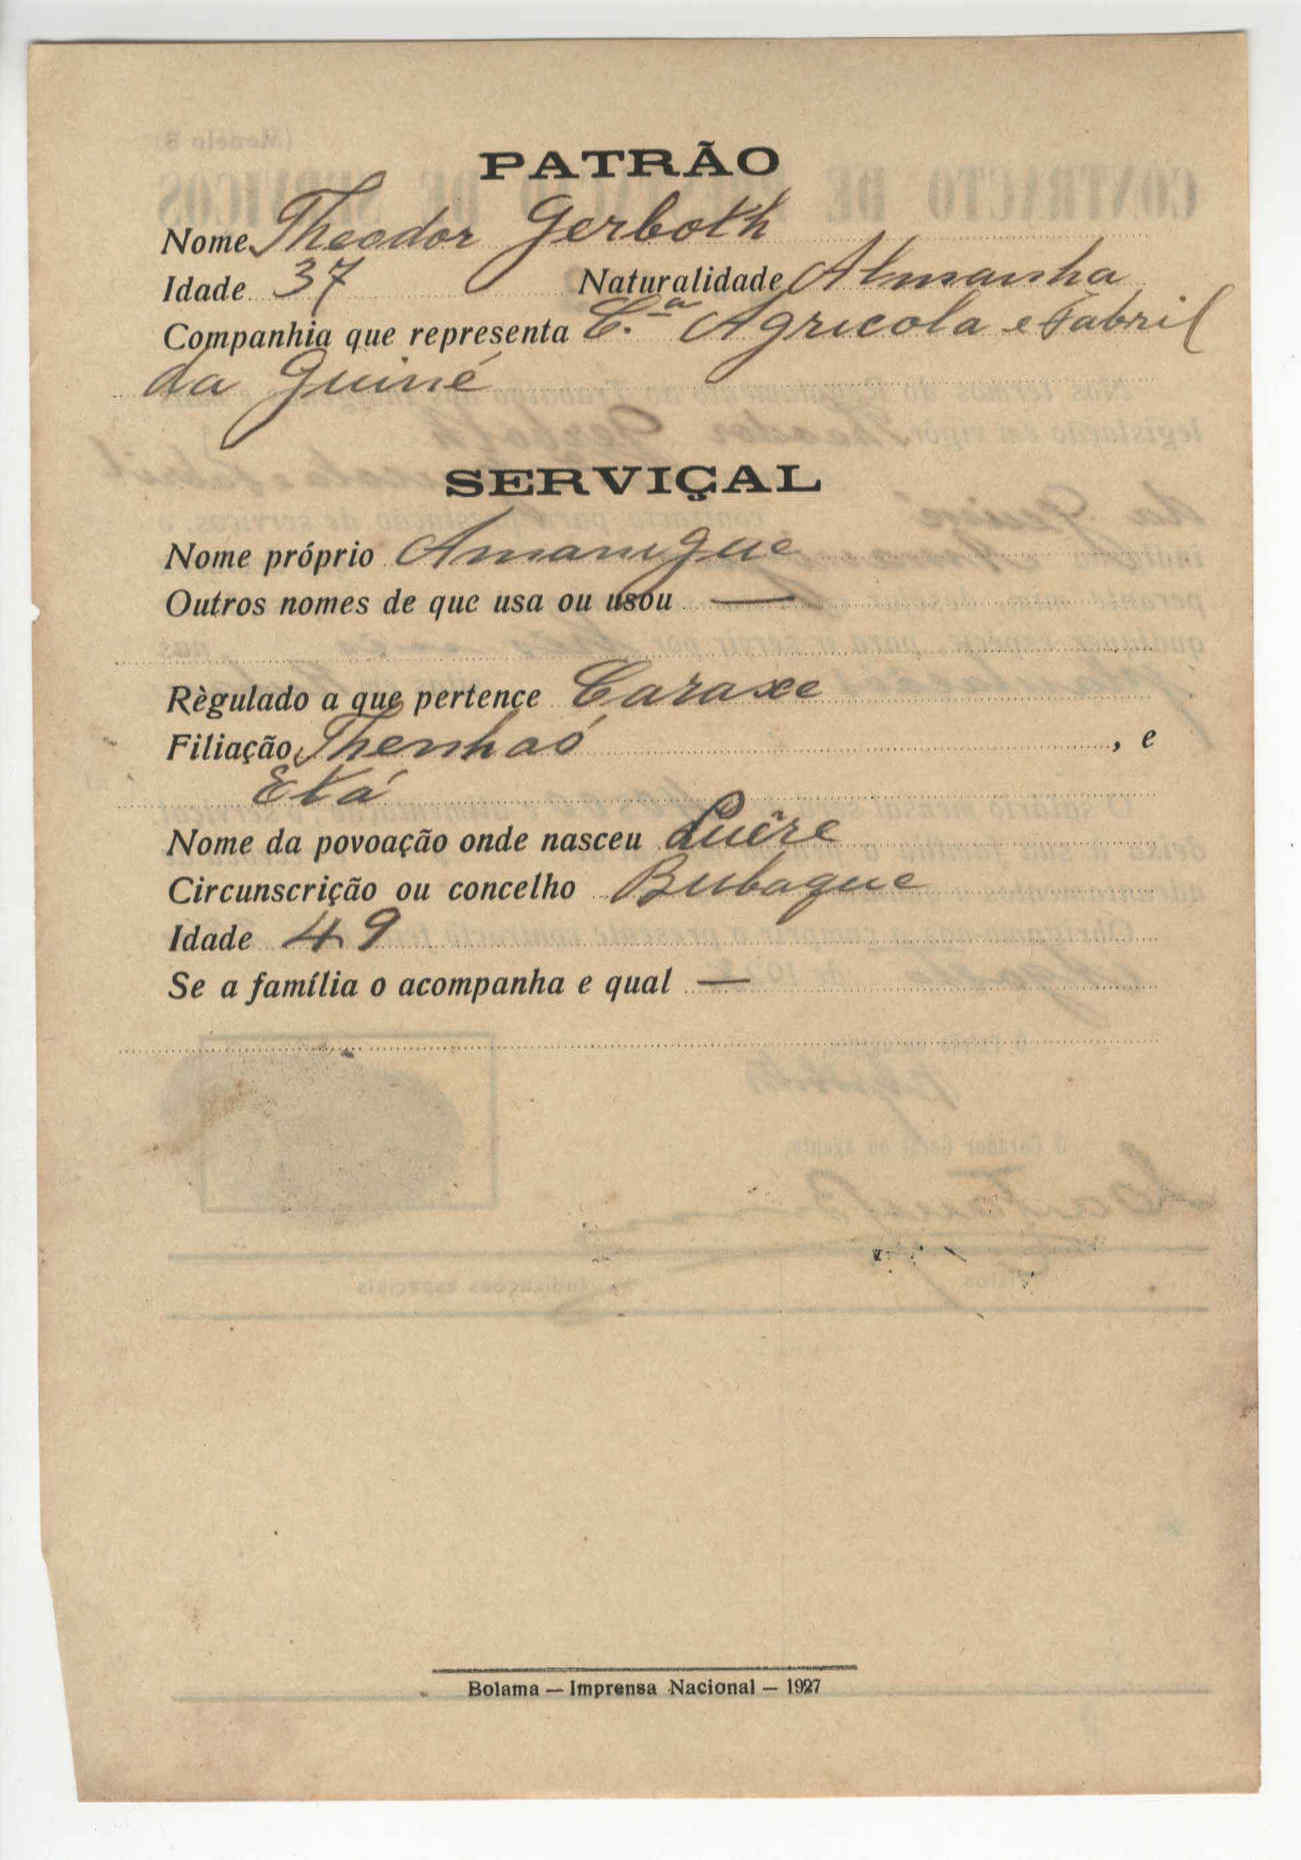 PATRÃO
Nome Theodor Gerboth
Idade 37 Naturalidade Almanha
Companhia que representa C.ª Agricola e Fabril
da Guiné
SERVIÇAL
Nome próprio Amanigue
Outros nomes de que usa ou usou —
Règulado a que pertence Caraxe
Filiação Thenhaó, e
Etá
Nome da povoação onde nasceu Luêre
Circunscrição ou concelho Bubaque
Idade 49
Se a família o acompanha e qual —
Bolama — Imprensa Nacional — 1927